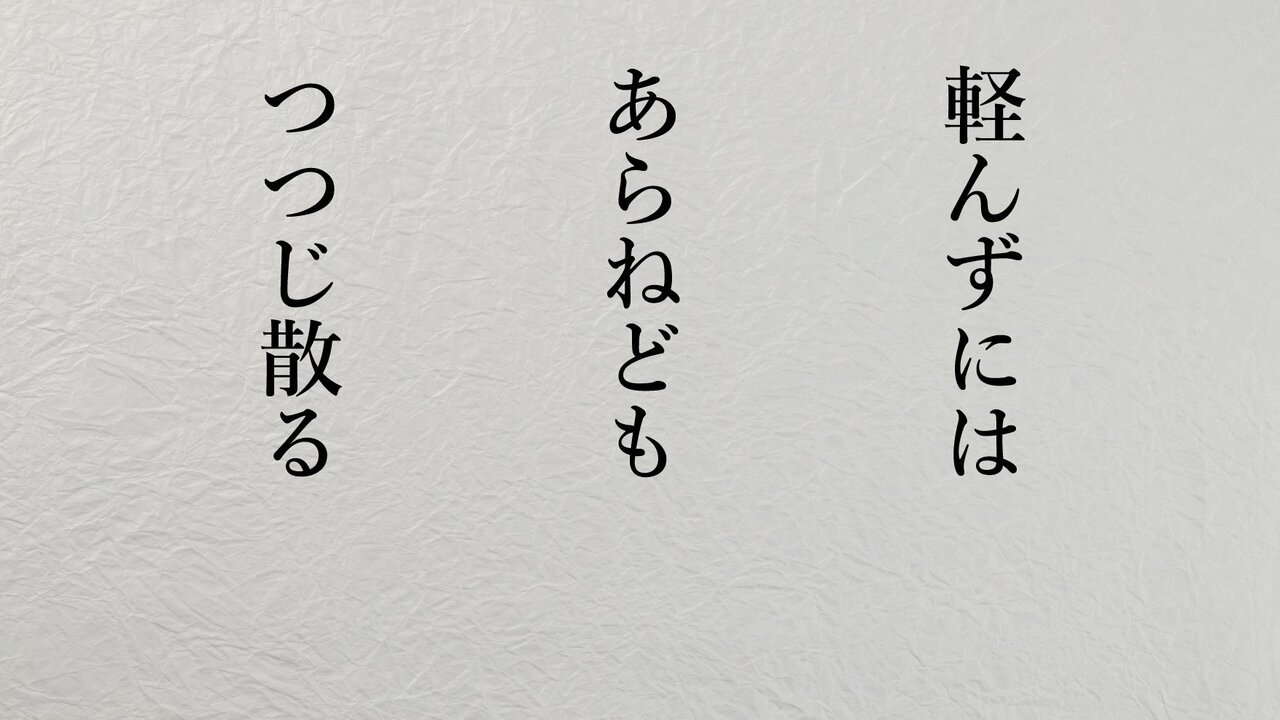 軽んずには
あらねども
つつじ散る